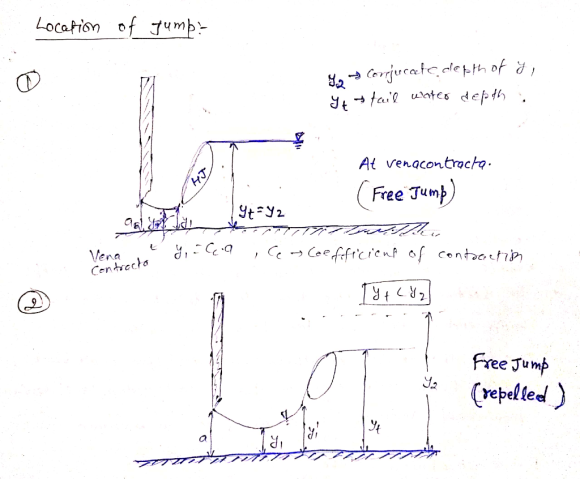 Location of Jump:-
①
y2 → Conjucate depth of y1
yt → tail water depth.
HJ
At venacontracta.
(Free Jump)
yt = y2
a
y1
Vena Contracta
y1 = Cc.a , Cc → Coefficient of contraction
②
yt < y2
Free Jump
(repelled)
a
y1
y1'
yt
y2